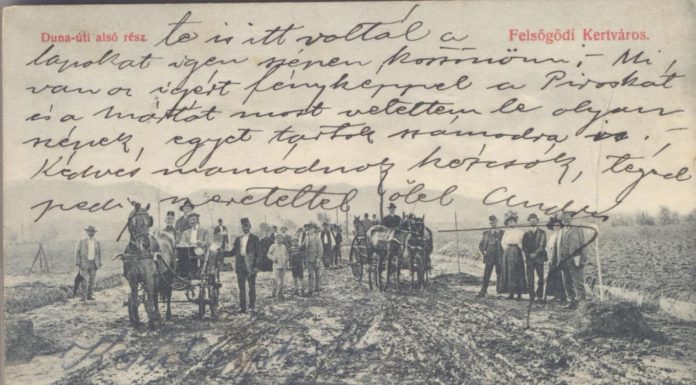 Duna-úti alsó rész.
Felsőgödi Kertváros.
te is itt voltál a
lapokat igen szépen köszönöm; – Mi
van az igért fényképpel a Piroskát
és a Mártát most vetettem le olyan
szépek, egyet tartok számodra is. –
Kedves mamádnak kézcsók, téged
pedig szeretettel ölel